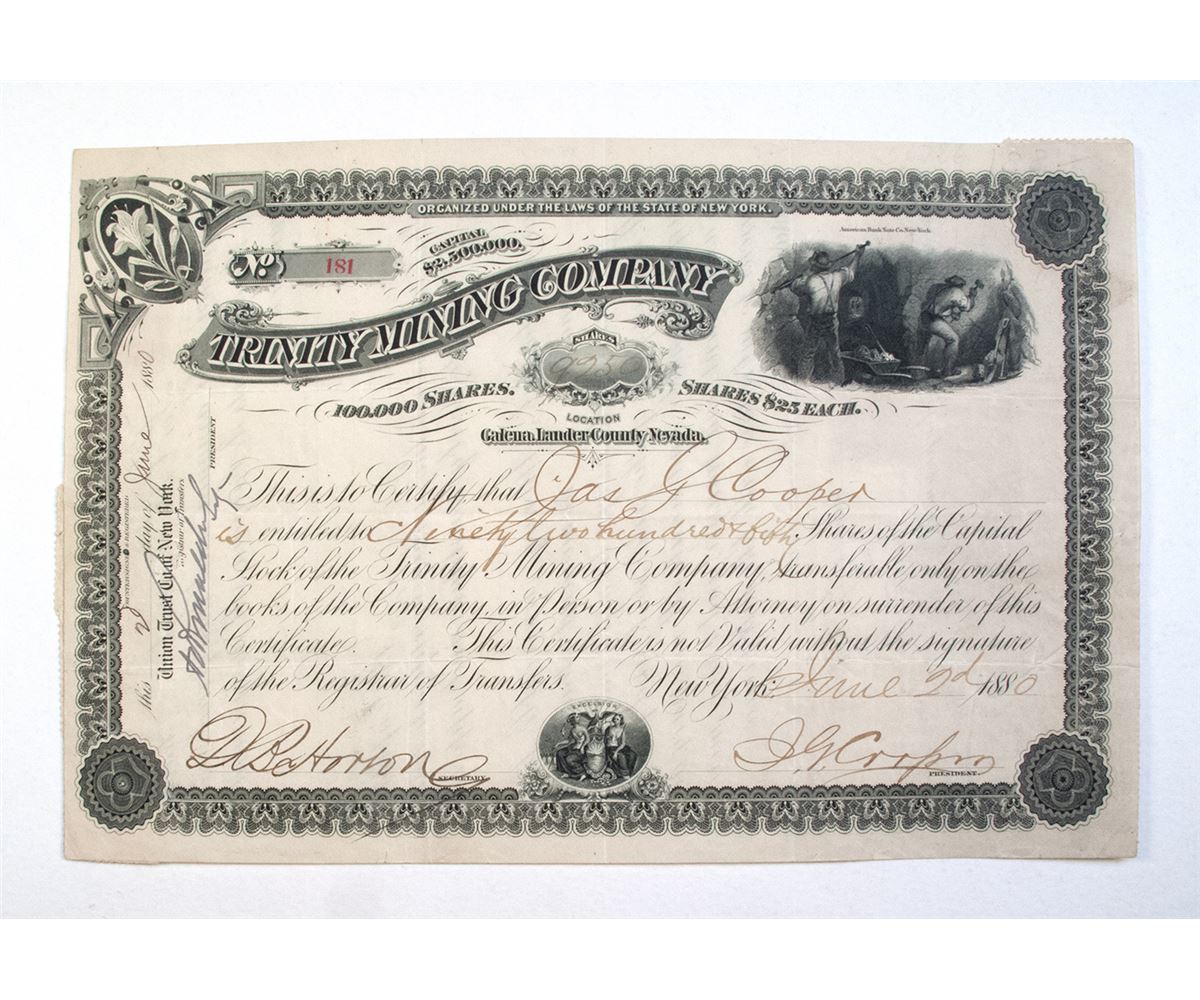 ORGANIZED UNDER THE LAWS OF THE STATE OF NEW YORK.
American Bank Note Co. New York.
No 181
CAPITAL
$2,500,000.
TRINITY MINING COMPANY
SHARES
9250
100,000 SHARES.
SHARES $25 EACH.
LOCATION
Galena, Lander County Nevada.
This is to Certify that Jas G Cooper
is entitled to Ninety two hundred & fifty Shares of the Capital
Stock of the Trinity Mining Company, transferable only on the
books of the Company, in Person or by Attorney on surrender of this
Certificate. This Certificate is not Valid without the signature
of the Registrar of Transfers. New York, June 2d 1880
EXCELSIOR
SECRETARY.
PRESIDENT.
COUNTERSIGNED & REGISTERED
this 2d day of June 1880
Union Trust Co. of New York.
Registrar of Transfers
PRESIDENT